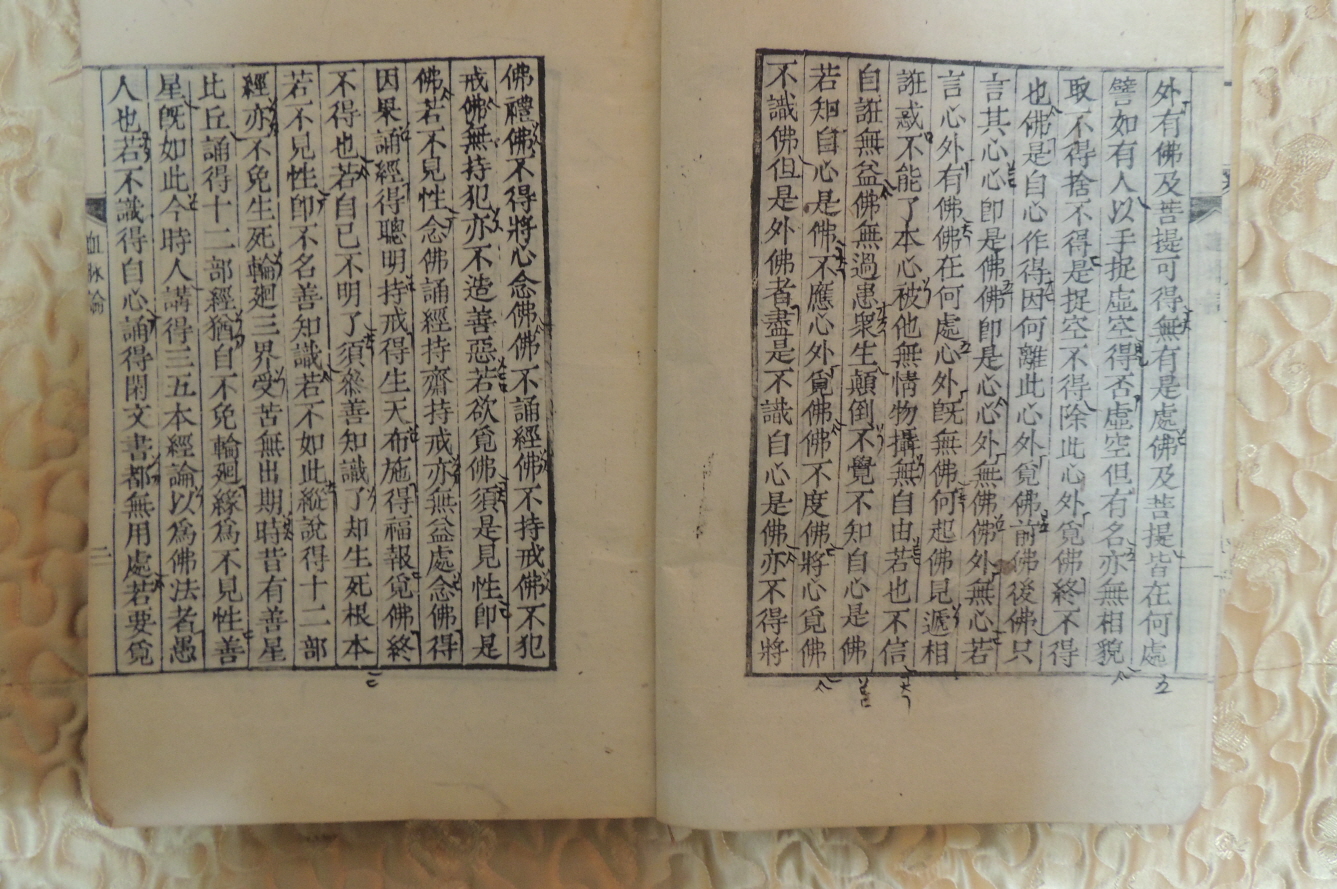 外有佛及菩提可得無有是處佛及菩提皆在何處
譬如有人以手捉虛空得否虛空但有名亦無相貌
取不得捨不得是捉空不得除此心外覓佛終不得
也佛是自心作得因何離此心外覓佛前佛後佛只
言其心心卽是佛佛卽是心心外無佛佛外無心若
言心外有佛佛在何處心外旣無佛何起佛見遞相
誑惑不能了本心被他無情物攝無自由若也不信
自誑無益佛無過患衆生顚倒不覺不知自心是佛
若知自心是佛不應心外覓佛佛不度佛將心覓佛
不識佛但是外佛者盡是不識自心是佛亦不得將
佛禮佛不得將心念佛佛不誦經佛不持戒佛不犯
戒佛無持犯亦不造善惡若欲覓佛須是見性卽是
佛若不見性念佛誦經持齋持戒亦無益處念佛得
因果誦經得聰明持戒得生天布施得福報覓佛終
不得也若自己不明了須叅善知識了却生死根本
若不見性卽不名善知識若不如此縱說得十二部
經亦不免生死輪廻三界受苦無出期時昔有善星
比丘誦得十二部經猶自不免輪廻緣爲不見性善
星旣如此今時人講得三五本經論以爲佛法者愚
人也若不識得自心誦得閑文書都無用處若要覓
血脉論
二